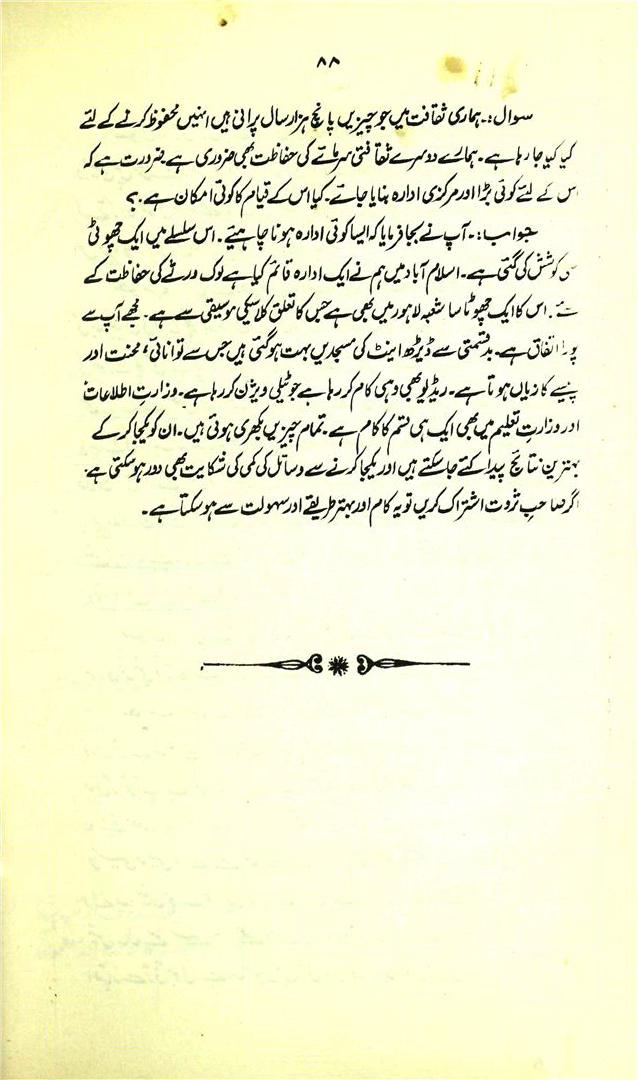 ۸۸
سوال:۔ ہماری ثقافت میں جو چیزیں پانچ ہزار سال پرانی ہیں انہیں محفوظ کرنے کے لئے
کیا کیا جا رہا ہے۔ ہمارے دوسرے ثقافتی سرمائے کی حفاظت بھی ضروری ہے ضرورت ہے کہ
اس کے لئے کوئی بڑا اور مرکزی ادارہ بنایا جائے۔ کیا اس کے قیام کا کوئی امکان ہے۔؟
جواب:۔ آپ نے بجا فرمایا کہ ایسا کوئی ادارہ ہونا چاہیئے۔ اس سلسلے میں ایک چھوٹی
سی کوشش کی گئی ہے۔ اسلام آباد میں ہم نے ایک ادارہ قائم کیا ہے لوک ورثے کی حفاظت کے
لئے۔ اس کا ایک چھوٹا سا شعبہ لاہور میں بھی ہے جس کا تعلق کلاسیکی موسیقی سے ہے۔ مجھے آپ سے
پورا اتفاق ہے۔ بدقسمتی سے ڈیڑھ اینٹ کی مسجدیں بہت ہو گئی ہیں جس سے توانائی، محنت اور
پیسے کا زیاں ہوتا ہے۔ ریڈیو بھی وہی کام کر رہا ہے جو ٹیلی ویژن کر رہا ہے۔ وزارتِ اطلاعات
اور وزارتِ تعلیم میں بھی ایک ہی قسم کا کام ہے۔ تمام چیزیں بکھری ہوئی ہیں۔ ان کو یکجا کر کے
بہترین نتائج پیدا کئے جا سکتے ہیں اور یکجا کرنے سے وسائل کی کمی کی شکایت بھی دور ہو سکتی ہے۔
اگر صاحبِ ثروت اشتراک کریں تو یہ کام اور بہتر طریقے اور سہولت سے ہو سکتا ہے۔